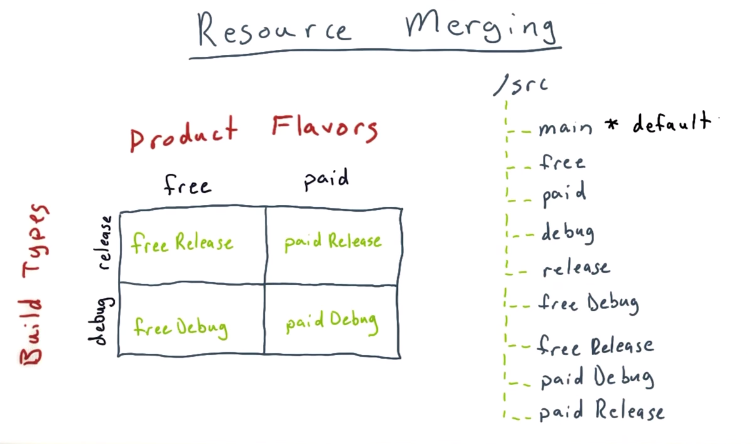 Resource Merging
Product Flavors
free paid
Build Types
release
free Release paid Release
debug
free Debug paid Debug
/src
main * default
free
paid
debug
release
free Debug
free Release
paid Debug
paid Release